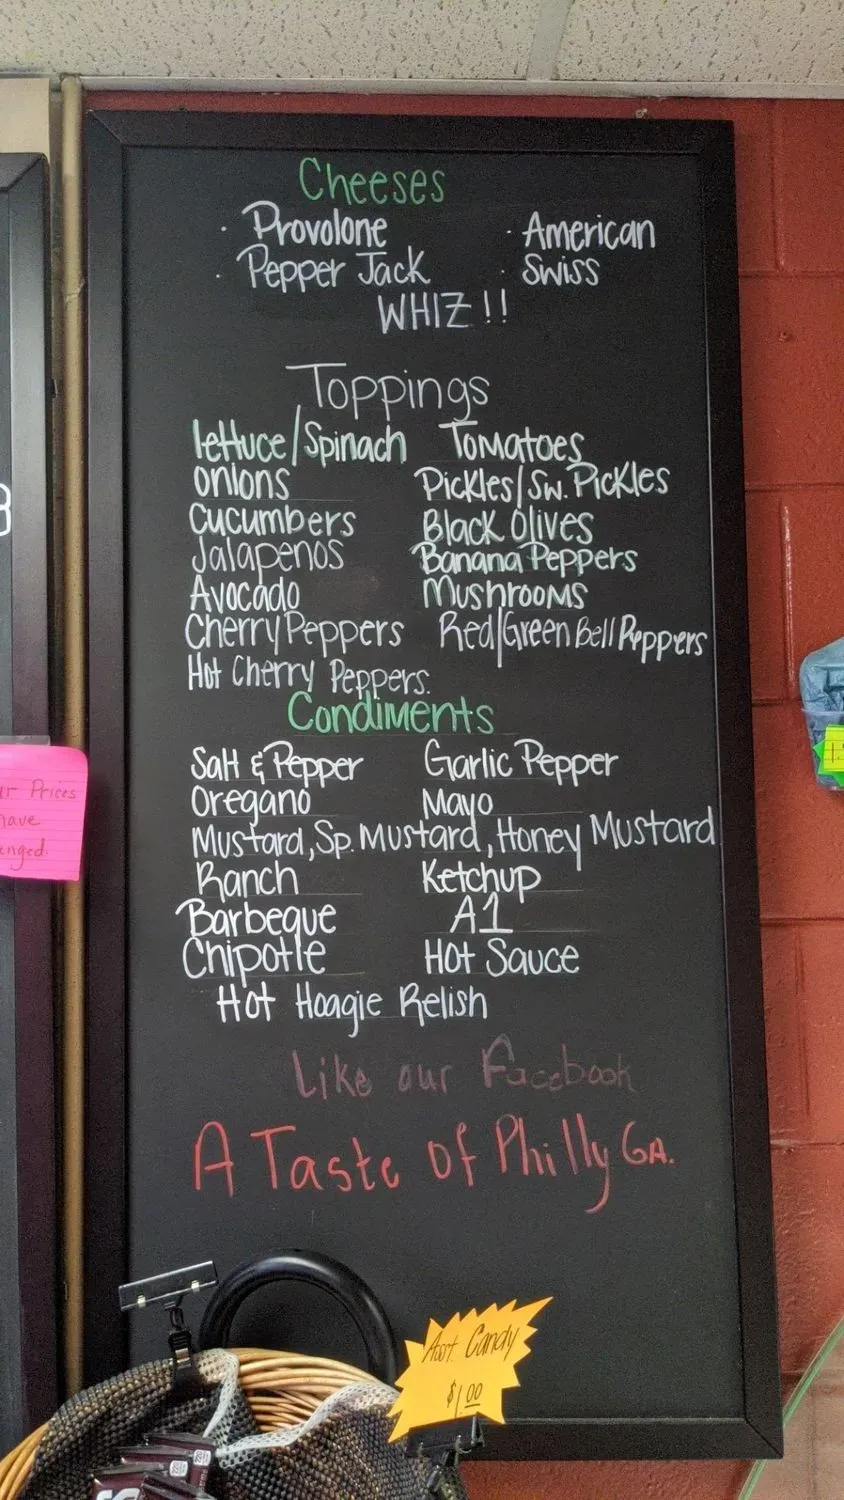 Cheeses
· Provolone · American
· Pepper Jack · Swiss
WHIZ!!
Toppings
lettuce/Spinach Tomatoes
Onions Pickles/Sw. Pickles
Cucumbers Black Olives
Jalapenos Banana Peppers
Avocado Mushrooms
Cherry Peppers Red/Green Bell Peppers
Hot Cherry Peppers.
Condiments
Salt & Pepper Garlic Pepper
Oregano Mayo
Mustard, Sp. Mustard, Honey Mustard
Ranch Ketchup
Barbeque A1
Chipotle Hot Sauce
Hot Hoagie Relish
Like our Facebook
A Taste of Philly GA.
Prices
Asst. Candy
$1.00